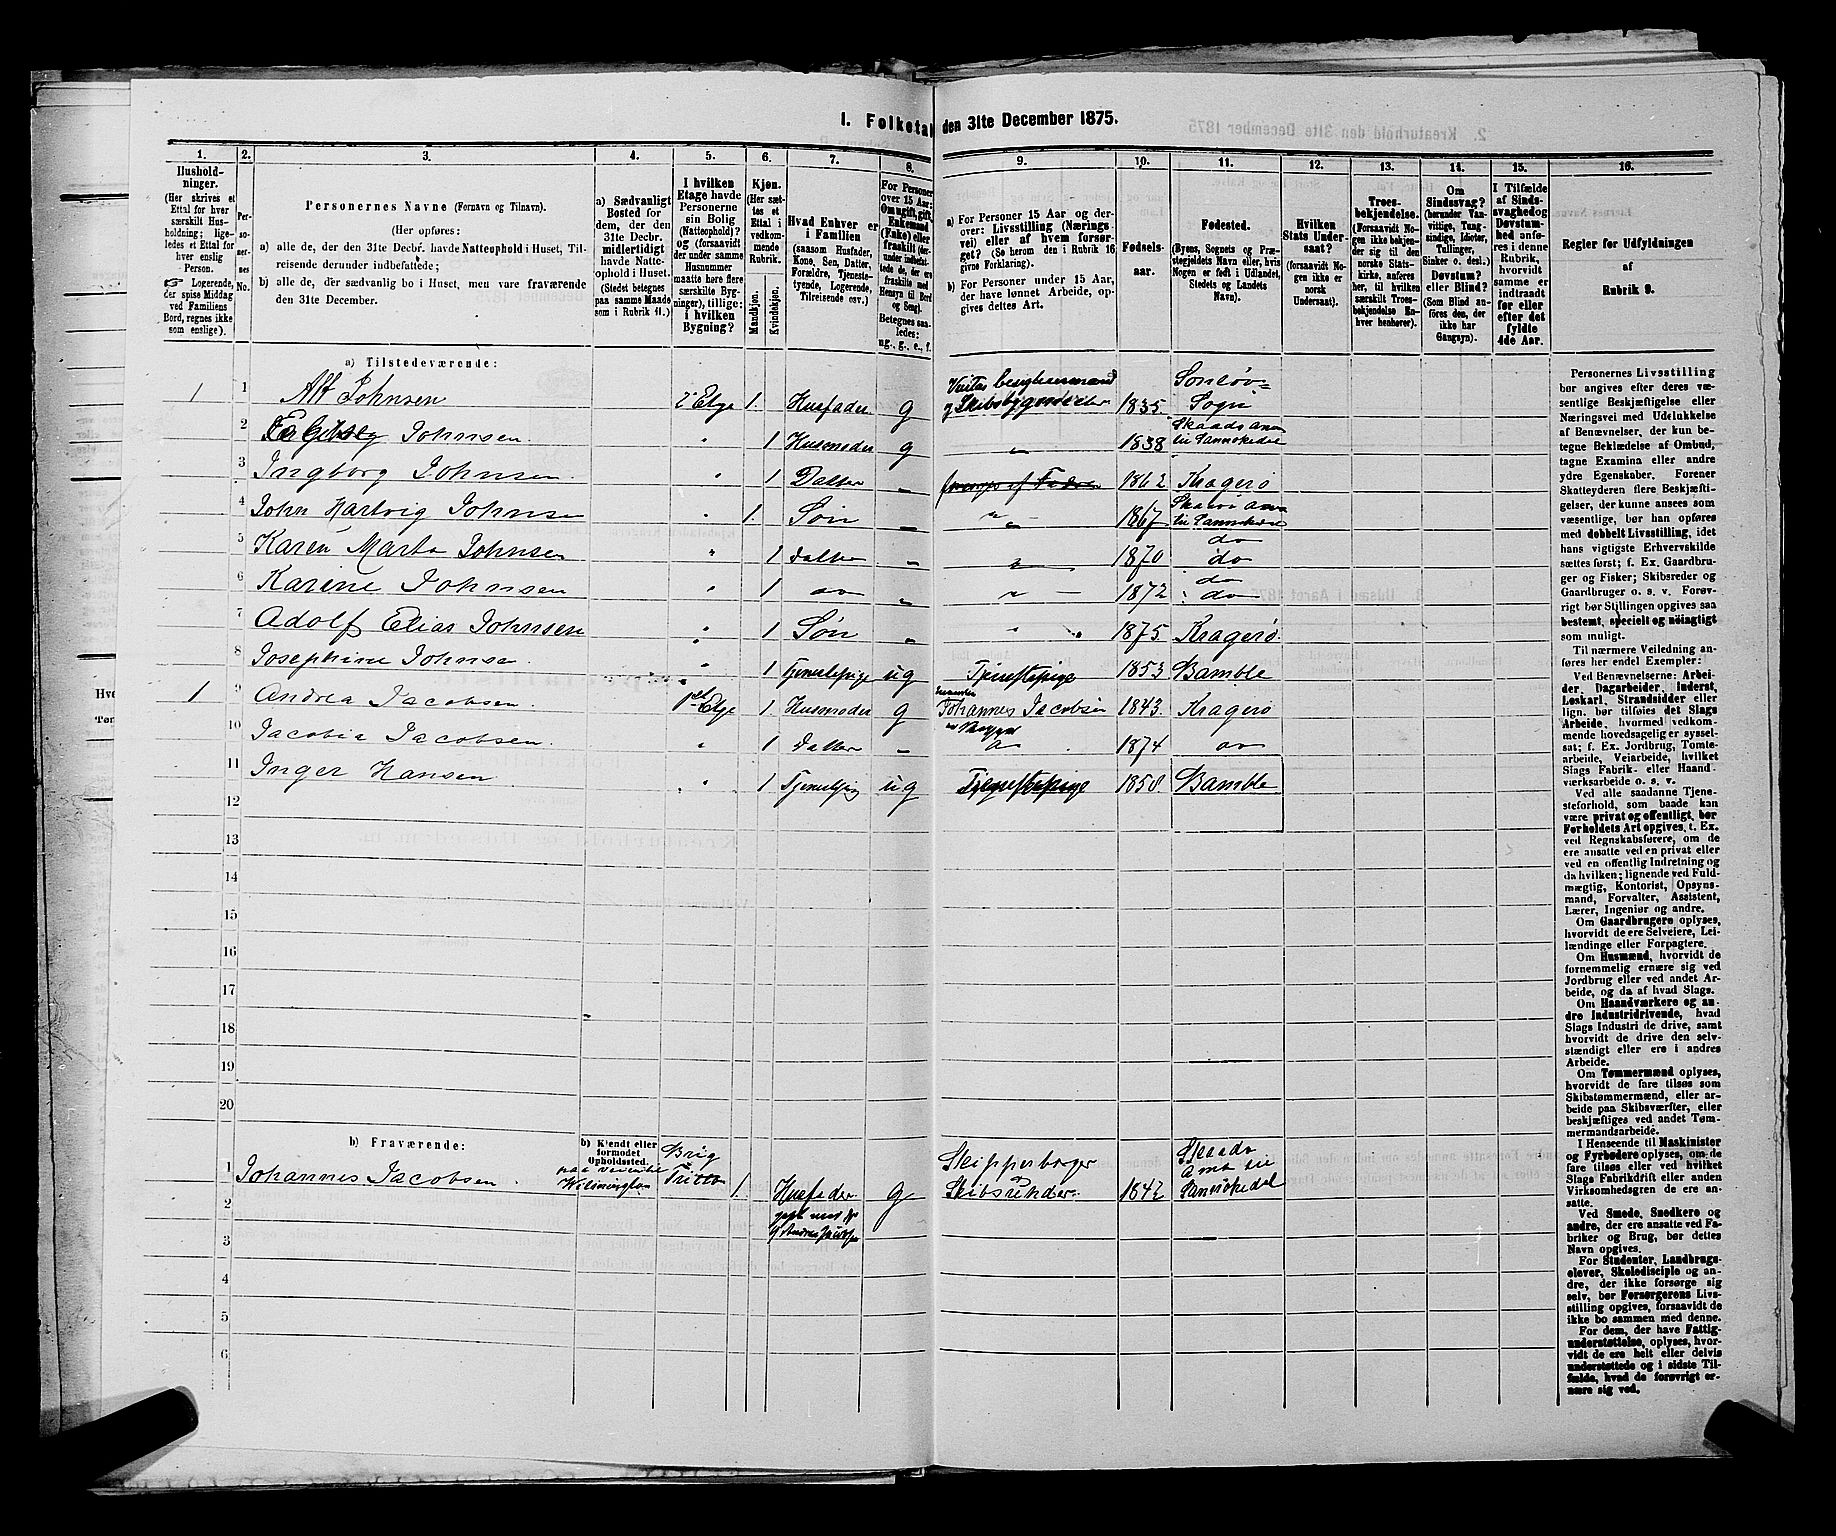 1. Folketal den 31te December 1875.
1. 2. 3. 4. 5. 6. 7. 8. 9. 10. 11. 12. 13. 14. 15. 16.
Husholdninger.
(Her skrives et
Ettal for hver
særskilt Husholdning;
ligeledes et Ettal for
hver enslig
Person.
Logerende,
der spise Middag
ved Familiens
Bord, regnes ikke
som enslige).
Personernes No.
Personernes Navne (Fornavn og Tilnavn).
(Her opføres:
a) alle de, der den 31te Decbr. havde Natteophold i Huset, Tilreisende derunder indbefattede;
b) alle de, der sædvanlig bo i Huset, men vare fraværende
den 31te December.
a) Sædvanligt
Bosted for
dem, der den
31te Decbr.
midlertidigt
havde Natteophold
i Huset.
(Stedet betegnes
paa samme Maade
som i Rubrik 11.)
I hvilken
Etage havde
Personerne
sin Bolig
(Natteophold)?
og (forsaavidt
der under samme
Husnummer
maatte høre flere
særskilte Bygninger),
tillige:
i hvilken
Bygning?
Kjøn.
(Her sættes
et
Ettal i
vedkommende
Rubrik.
Mandkjøn.
Kvindekjøn.
Hvad Enhver er
i Familien
(saasom Husfader,
Kone, Søn, Datter,
Forældre, Tjenestetyende,
Logerende,
Tilreisende osv.)
For Personer
over 15 Aar:
Om ugift, gift,
Enkemand
(Enke) eller
fraskilt
Betegnes saaledes:
ug., g., e., f.
a) For Personer 15 Aar og derover:
Livsstilling (Næringsvei)
eller af hvem forsørget?
(Se herom den i Rubrik 16
givne Forklaring).
b) For Personer under 15 Aar,
der have lønnet Arbeide, opgives
dettes Art.
Fødselsaar.
Fødested.
(Byens, Sognets og Præstegjeldets
Navn eller, hvis
Nogen er født i Udlandet,
Stedets og Landets
Navn).
Hvilken
Stats Undersaat?
(forsaavidt
Nogen ikke er
norsk
Undersaat).
Troesbekjendelse.
(Forsaavidt Nogen
ikke bekjender
sig til den
norske Statskirke,
anføres
her, til hvilken
særskilt Troesbekjendelse
Enhver henhører).
Om
Sindssvag?
(herunder Vanvittige,
Tungsindige,
Idioter,
Tullinger,
Sinker o. desl.)
Døvstum?
eller Blind?
(Som Blind anføres
den, der
ikke har
Gangsyn).
I Tilfælde
af Sindssvaghed
og
Døvstumhed
anføres
i denne
Rubrik,
hvorvidt
samme er
indtraadt
før eller
efter det
fyldte
4de Aar.
Regler for Udfyldningen
af
Rubrik 9.
a) Tilstedeværende:
1 1 Alf Johnsen 2 Etge 1. Husfader g 1835 Sogn
2 Johnsen " 1 Husmoder g " 1838 til Sannikedal
3 Ingborg Johnsen " 1 Datter – 1862 Kragerø
4 John Hartvig Johnsen " 1. Søn – " 1867 til Sannikedal
5 Karen Marta Johnsen " 1 datter – " 1870 do do
6 Karine Johnsen " 1 do – " 1872 do do
7 Adolf Elias Johnsen " 1 Søn – " 1875 Kragerø
8 Josephine Johnsen " 1 Tjenestepige ug Tjenestepige 1853 Bamble
1 9 Andrea Jacobsen 1st Etge 1 Husmoder g Johannes Jacobsen 1843. Kragerø
10 Jacobia Jacobsen. " 1 datter – do 1874 do
11 Inger Hansen " 1 ug Tjenestepige 1850. Bamble
12
13
14
15
16
17
18
19
20
b) Fraværende:
b) Kjendt eller
formodet
Opholdssted.
1 Johannes Jacobsen Wilmington Brig Triton 1. Husfader g Skipperborger Skibsrheder 1842 Amt til Sannikedal
gift med
Andrea Jacobsen
2
3
4
5
6
Personernes Livsstilling
bør angives efter deres væsentlige
Beskjæftigelse eller
Næringsvei med Udelukkelse
af Benævnelser, der kun betegne
Beklædelse af Ombud,
tagne Examina eller andre
ydre Egenskaber. Forener
Skatteyderen flere Beskjæftigelser,
der kunne ansees som
væsentlige, bør han opføres
med dobbelt Livsstilling, idet
hans vigtigste Erhvervskilde
sættes først; f. Ex. Gaardbruger
og Fisker; Skibsreder og
Gaardbruger o. s. v. Forøvrigt
bør Stillingen opgives saa
bestemt, specielt og nøiagtigt
som muligt.
Til nærmere Veiledning anføres
her endel Exempler:
Ved Benævnelserne: Arbeider,
Dagarbeider, Inderst,
Løskarl, Strandsidder eller
lign. bør tilføies det Slags
Arbeide, hvormed vedkommende
hovedsagelig er sysselsat;
f. Ex. Jordbrug, Tomtearbeide,
Veiarbeide, hvilket
Slags Fabrik- eller Haandværksarbeide
o. s. v.
Ved alle saadanne Tjenesteforhold,
som baade kan
være privat og offentligt, bør
Forholdets Art opgives, f. Ex.
ved Regnskabsførere, om de
ere ansatte ved en privat eller
ved en offentlig Indretning og
da hvilken; lignende ved Fuldmægtig,
Kontorist, Opsynsmand,
Forvalter, Assistent,
Lærer, Ingeniør og andre.
Om Gaardbrugere oplyses,
hvorvidt de ere Selveiere, Leilændinge
eller Forpagtere.
Om Husmænd, hvorvidt de
fornemmelig ernære sig ved
Jordbrug eller ved andet Arbeide,
og da af hvad Slags.
Om Haandværkere og andre
Industridrivende, hvad
Slags Industri de drive, samt
hvorvidt de drive den selvstændigt
eller ere i andres
Arbeide.
Om Tømmermænd oplyses,
hvorvidt de fare tilsøs som
Skibstømmermænd, eller arbeide
paa Skibsværfter, eller
beskjæftiges ved andet Tømmermandsarbeide.
I Henseende til Maskinister
og Fyrbødere oplyses, om de
fare tilsøs eller ved hvilket
Slags Fabrikdrift eller anden
Virksomhedsgren de ere ansatte.
Ved Smede, Snedkere og
andre, der ere ansatte ved Fabriker
og Brug, bør dettes
Navn opgives.
For Studenter, Landbrugselever,
Skoledisciple og andre,
der ikke forsørge sig
selv, bør Forsørgerens Livsstilling
opgives, forsaavidt de
ikke bo sammen med denne.
For dem, der have Fattigunderstøttelse,
oplyses, hvorvidt
de ere helt eller delvis
understøttede og i sidste Tilfælde,
hvad de forøvrigt ernære
sig ved.